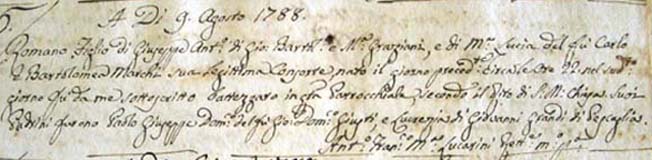 A Di 9. Agosto 1788.
Romano Figlio di Giuseppe Ant.º di Gio: Barth.º e M.ª Graziani, e di M.ª Lucia del fù Carlo
e Bartolomea Marchi sua legittima Consorte, nato il giorno preced.e circa le ore 22 nel sud.º
giorno fù da me sottoscritto battezzato in q.ta Parrocchiale secondo il Rito di S. M. Chiesa. Suoi
Padrini furono Paolo Giuseppe Dom.º del fù Gio: Dom.º Giusti e Lucrezia di Giovanni Grandi di Pescaglia.
Ant.º Fran.º M.ª Lucarini Rett.e m.º p.ª